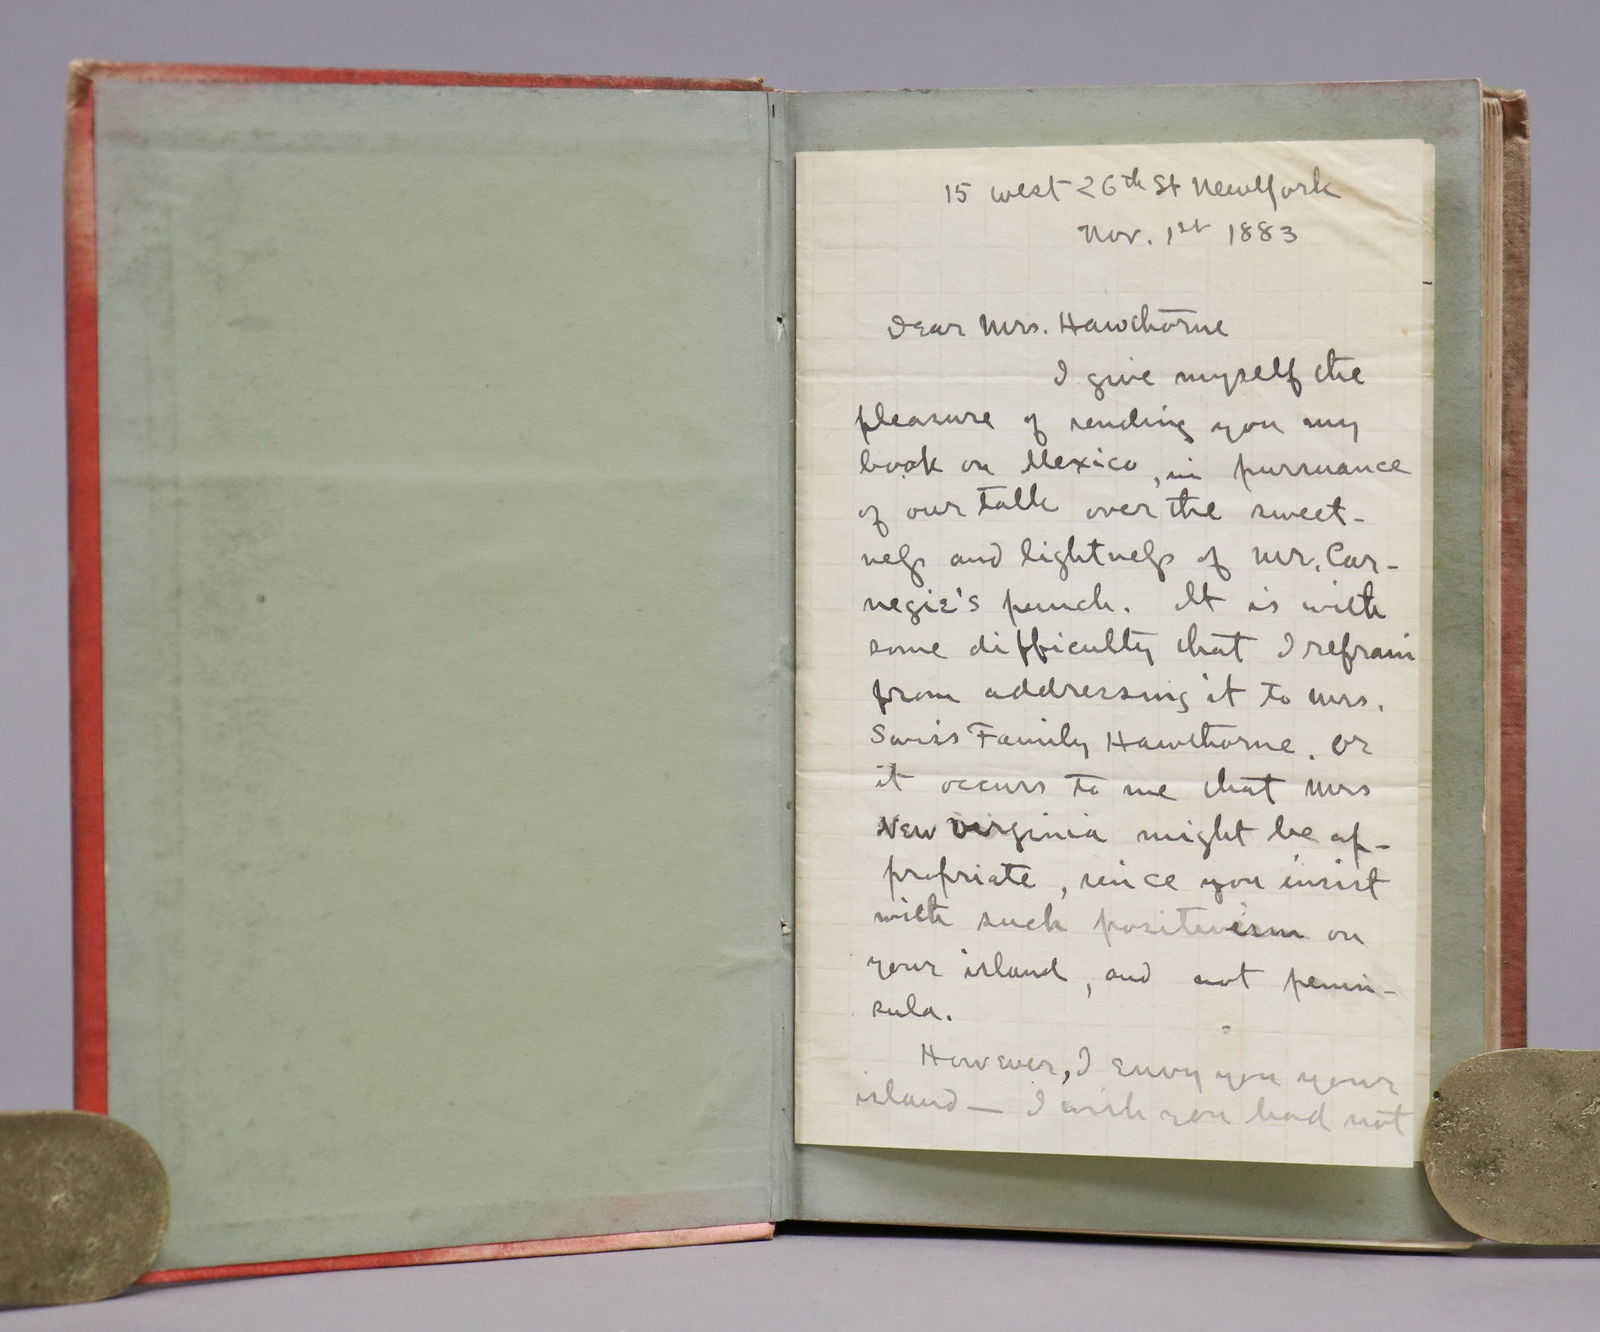 15 west 26th St New York
Nov. 1st 1883
Dear Mrs. Hawthorne
I give myself the
pleasure of sending you my
book on Mexico, in pursuance
of our talk over the sweet-
ness and lightness of Mr. Car-
negie's punch. It is with
some difficulty that I refrain
from addressing it to Mrs.
Swiss Family Hawthorne. Or
it occurs to me that Mrs
New Virginia might be ap-
propriate, since you insist
with such positivism on
your island, and not penin-
sula.
However, I envy you your
island — I wish you had not